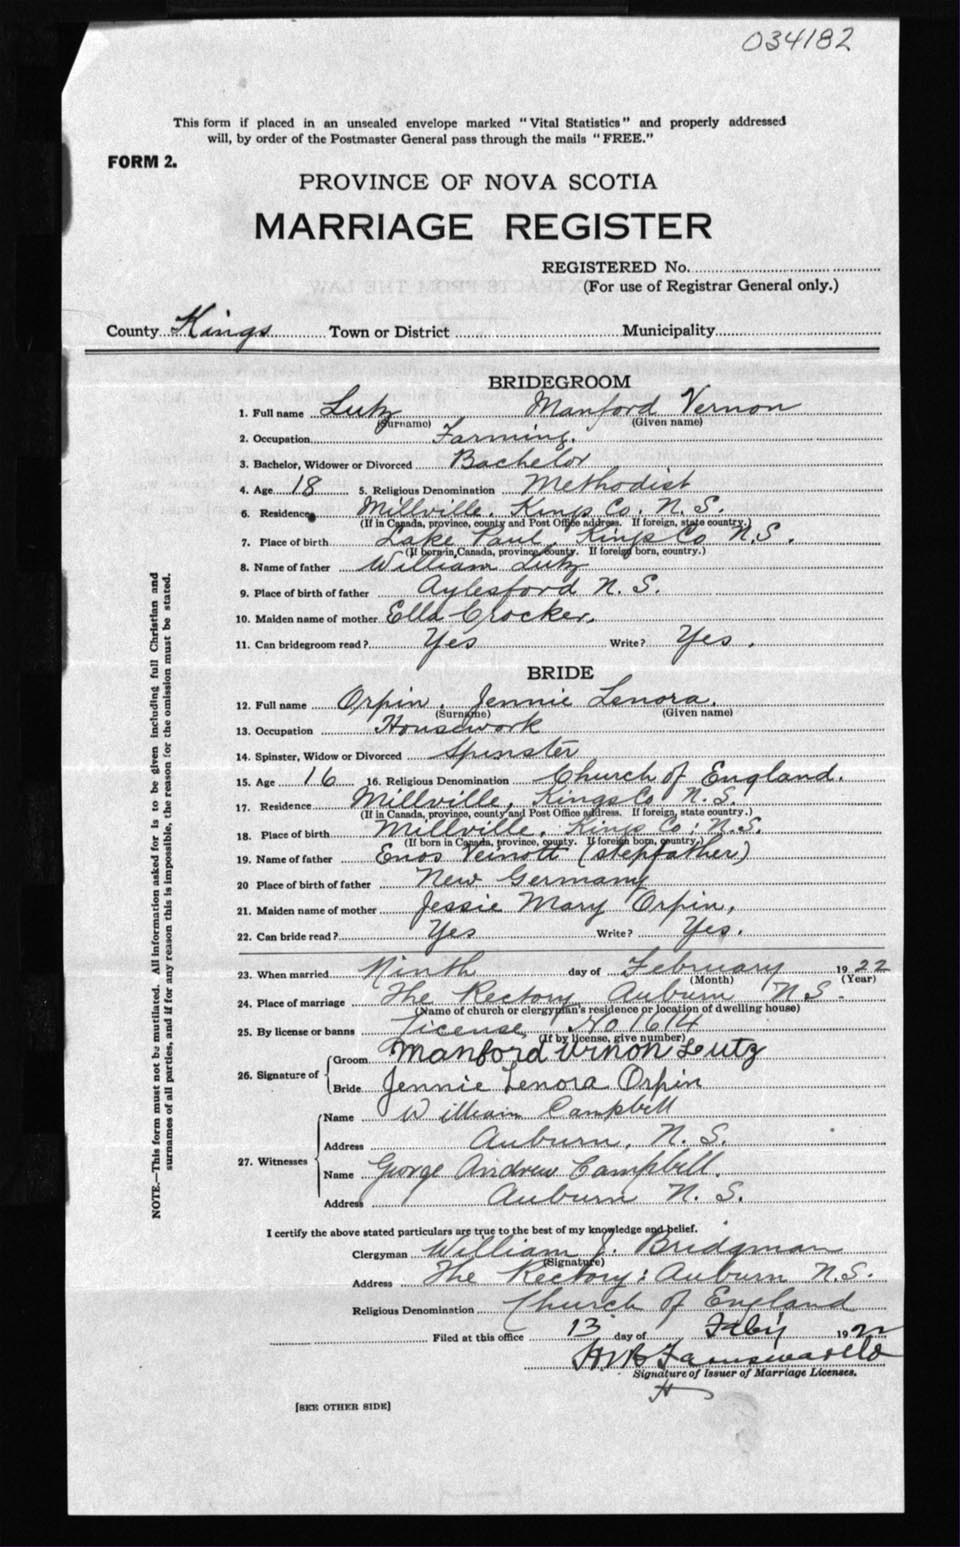 034182
This form if placed in an unsealed envelope marked "Vital Statistics" and properly addressed
will, by order of the Postmaster General pass through the mails "FREE."
FORM 2.
PROVINCE OF NOVA SCOTIA
MARRIAGE REGISTER
REGISTERED No.
(For use of Registrar General only.)
County Kings Town or District Municipality
BRIDEGROOM
1. Full name Lutz Manford Vernon
(Surname) (Given name)
2. Occupation Farming.
3. Bachelor, Widower or Divorced Bachelor
4. Age 18 5. Religious Denomination Methodist
6. Residence Millville, Kings Co. N. S.
(If in Canada, province, county and Post Office address. If foreign, state country.)
7. Place of birth Lake Paul, Kings Co N.S.
(If born in Canada, province county. If foreign born, country.)
8. Name of father William Lutz
9. Place of birth of father Aylesford N. S.
10. Maiden name of mother Ella Crocker.
11. Can bridegroom read? Yes Write? Yes.
BRIDE
12. Full name Orpin, Jennie Lenora.
(Surname) (Given name)
13. Occupation Housework
14. Spinster, Widow or Divorced Spinster
15. Age 16 16. Religious Denomination Church of England.
17. Residence Millville, Kings Co N.S.
(If in Canada, province, county and Post Office address. If foreign, state country.)
18. Place of birth Millville, Kings Co; N.S.
(If born in Canada, province, county. If foreign born, country.)
19. Name of father Enos Veinott (stepfather)
20 Place of birth of father New Germany
21. Maiden name of mother Jessie Mary Orpin,
22. Can bride read? Yes Write? Yes.
23. When married Ninth day of February 1922
(Month) (Year)
24. Place of marriage The Rectory Auburn N S.
(Name of church or clergyman's residence or location of dwelling house)
25. By license or banns License No 1614
(If by license, give number)
26. Signature of Groom Manford Vrnon Lutz
Bride Jennie Lenora Orpin
27. Witnesses Name William Campbell
Address Auburn, N. S.
Name George Andrew Campbell.
Address Auburn N. S.
I certify the above stated particulars are true to the best of my knowledge and belief.
Clergyman William J. Bridgman
(Signature)
Address The Rectory: Auburn N.S.
Religious Denomination Church of England
Filed at this office 13 day of Feby 1922
Signature of Issuer of Marriage Licenses.
[SEE OTHER SIDE]
NOTE.—This form must not be mutilated. All information asked for is to be given including full Christian and
surnames of all parties, and if for any reason this is impossible, the reason for the omission must be stated.